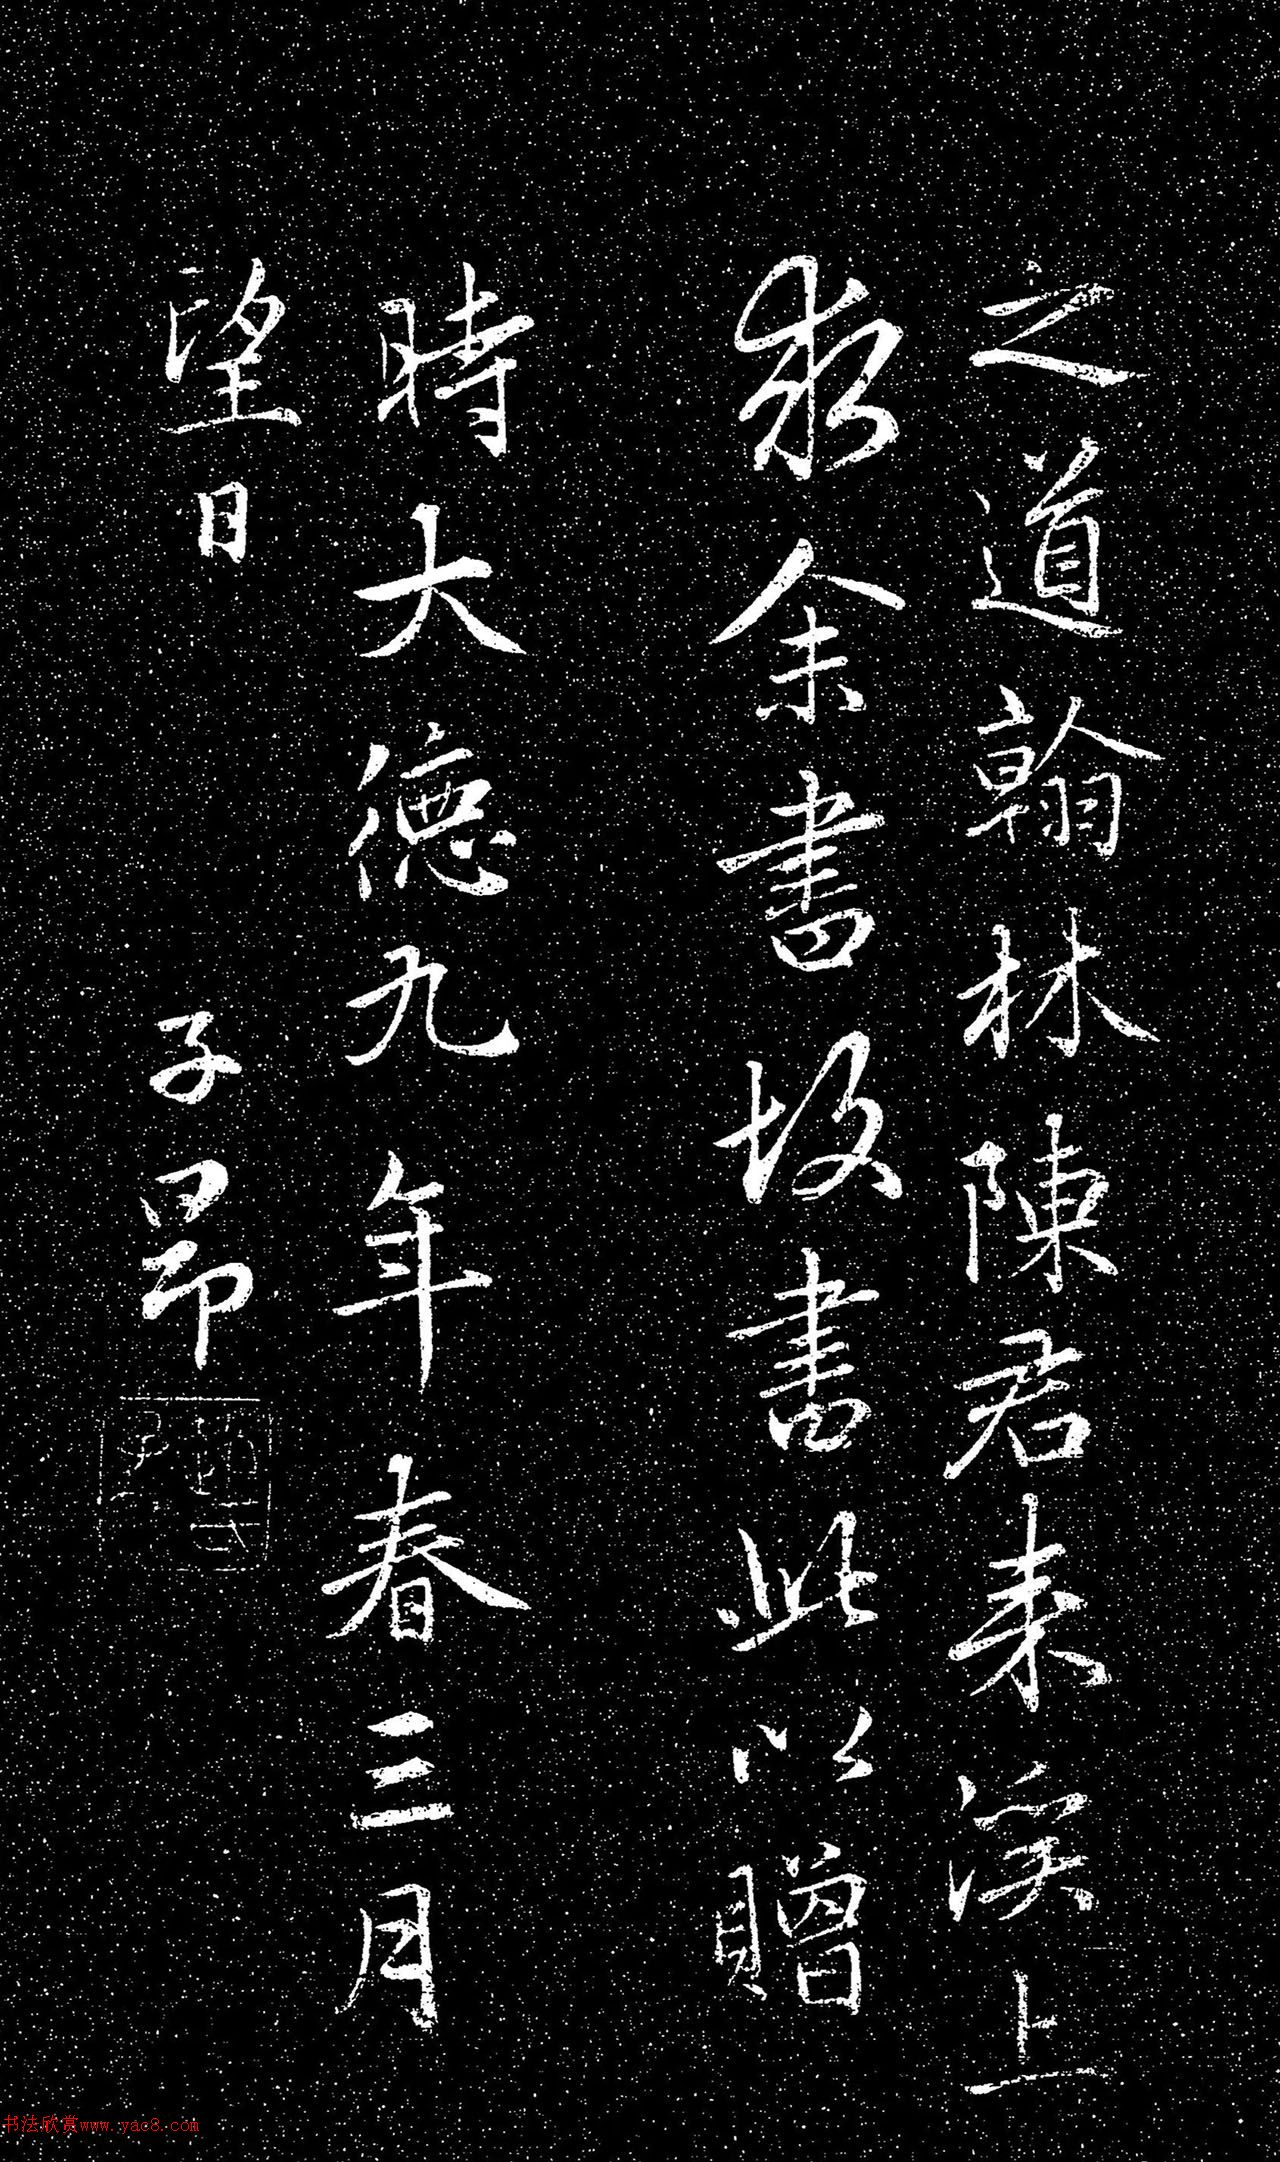 之道翰林陳君来溪上
求余書故書此以贈
時大德九年春三月
望日 子昂
书法欣赏www.yac8.com